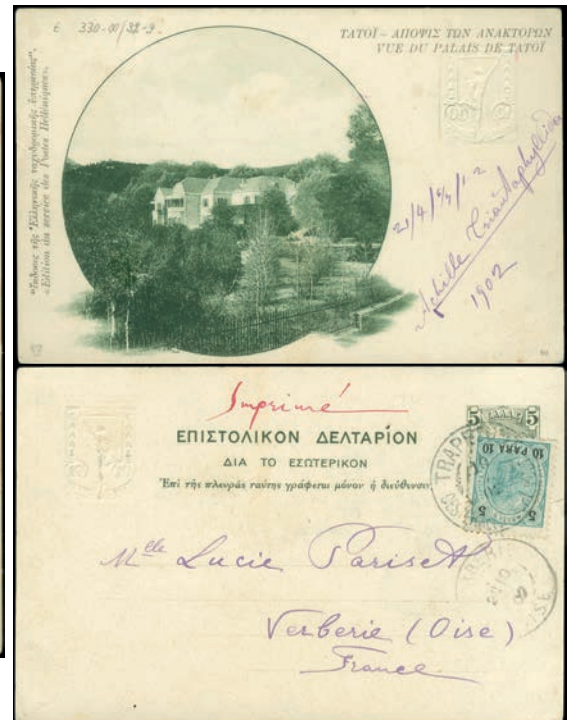 € 330-00/32-9.
ΤΑΤΟΪ – ΑΠΟΨΙΣ ΤΩΝ ΑΝΑΚΤΟΡΩΝ
VUE DU PALAIS DE TATOÏ
"Ἔκδοσις τῆς Ἑλληνικῆς ταχυδρομικῆς ὑπηρεσίας".
«Edition du service des Postes Helléniques».
Achille Triantaphyllides
1902
Imprimé
5 ΕΛΛΑΣ 5
ΕΠΙΣΤΟΛΙΚΟΝ ΔΕΛΤΑΡΙΟΝ
ΔΙΑ ΤΟ ΕΣΩΤΕΡΙΚΟΝ
Ἐπὶ τῆς πλευρᾶς ταύτης γράφεται μόνον ἡ διεύθυνσις
10 PARA 10
5 5
TRAPE
Mlle Lucie Pariset
Verberie (Oise)
France